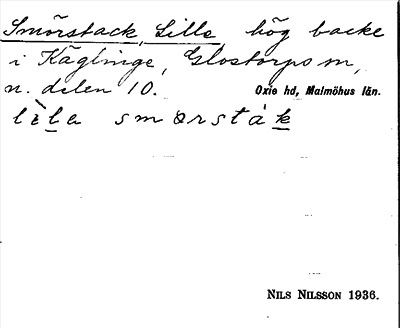 Smörstack, Lille hög backe
i Käglinge, Glostorps sn,
n. delen 10. Oxie hd, Malmöhus län.
lìla smørsták
NILS NILSSON 1936.